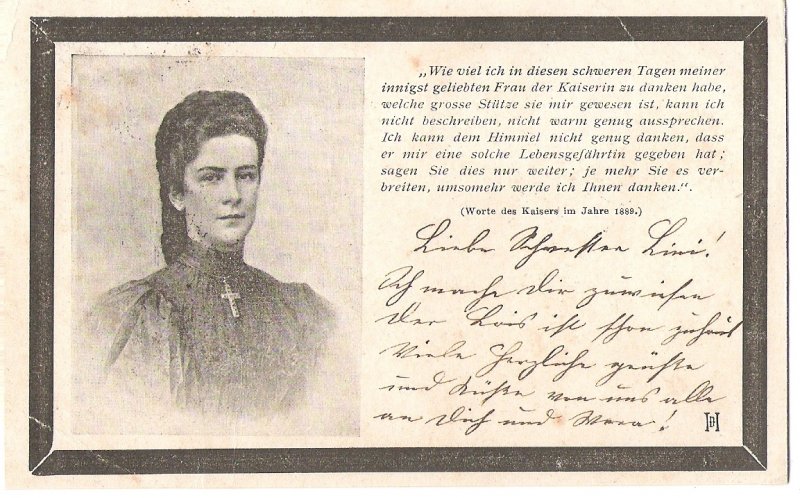 „Wie viel ich in diesen schweren Tagen meiner
innigst geliebten Frau der Kaiserin zu danken habe,
welche grosse Stütze sie mir gewesen ist, kann ich
nicht beschreiben, nicht warm genug aussprechen.
Ich kann dem Himmel nicht genug danken, dass
er mir eine solche Lebensgefährtin gegeben hat;
sagen Sie dies nur weiter; je mehr Sie es ver-
breiten, umsomehr werde ich Ihnen danken.“.
(Worte des Kaisers im Jahre 1889.)
Liebe Schwester Lini!
Ich mache Dir zuwissen
der Lois ist schon zuhaus
Viele Herzliche grüße
und Küße von uns alle
an Dich und